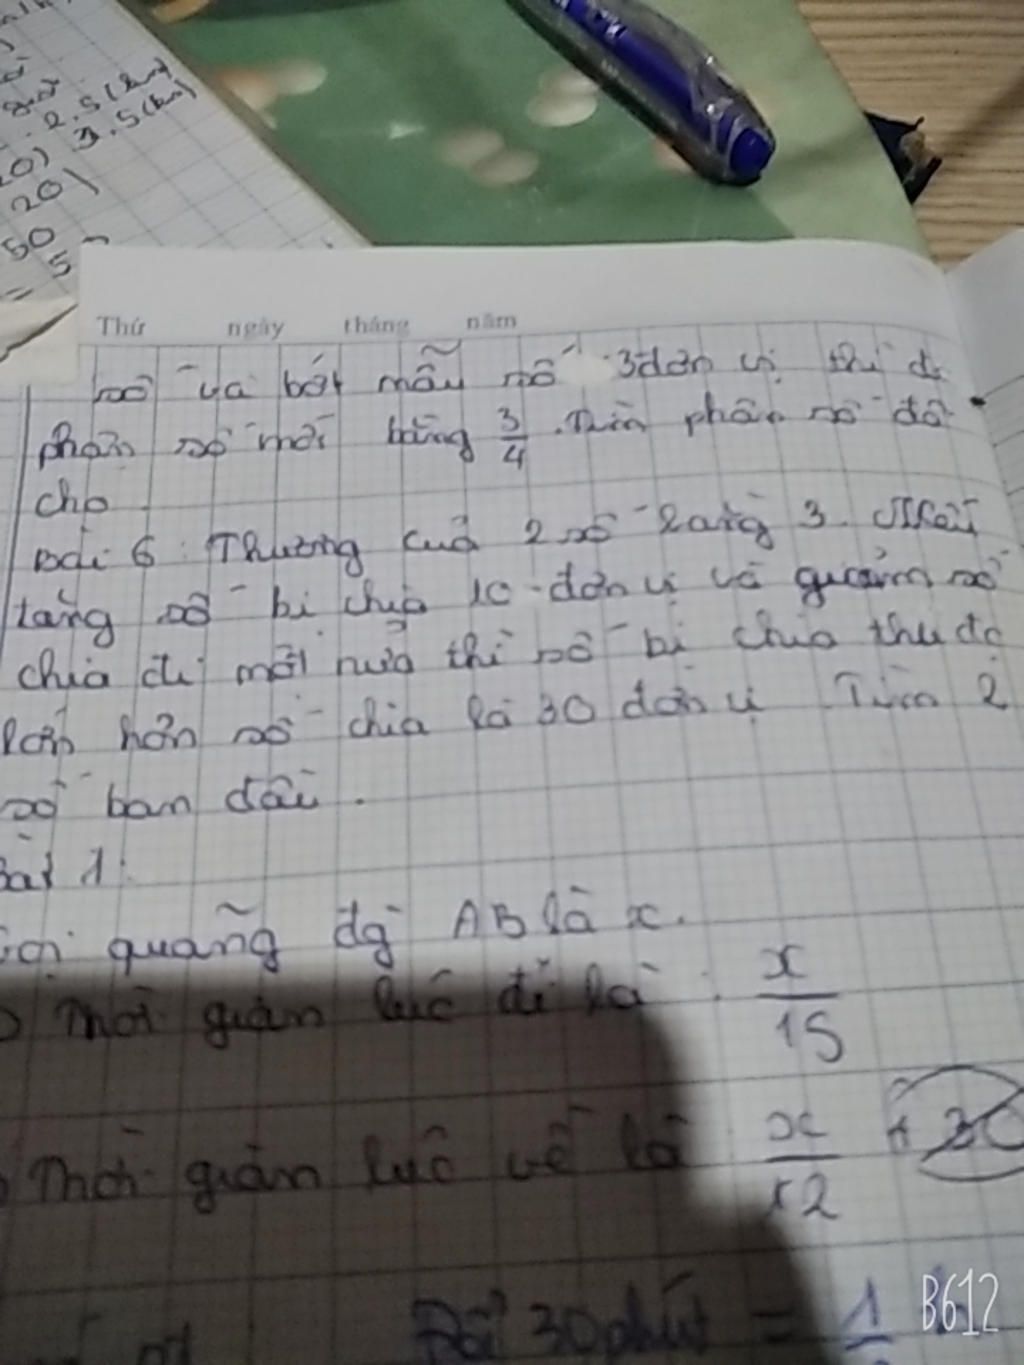 2.5 (km)
3.5 (km)
20)
50
= 5
Thứ ngày tháng năm
số và bớt mẫu số 3 đơn vị thì đc
phân số mới bằng 3/4 . Tìm phân số đã
cho
Bài 6 : Thương của 2 số bằng 3. Nếu
tăng số bị chia 10 đơn vị và giảm số
chia đi một nửa thì số bị chia thu đc
lớn hơn số chia là 30 đơn vị Tìm 2
số ban đầu .
Bài 1:
Gọi quãng đg AB là x.
Thời gian lúc đi là : x/15
Thời gian lúc về là x/12
Đổi 30 phút = 1
B612